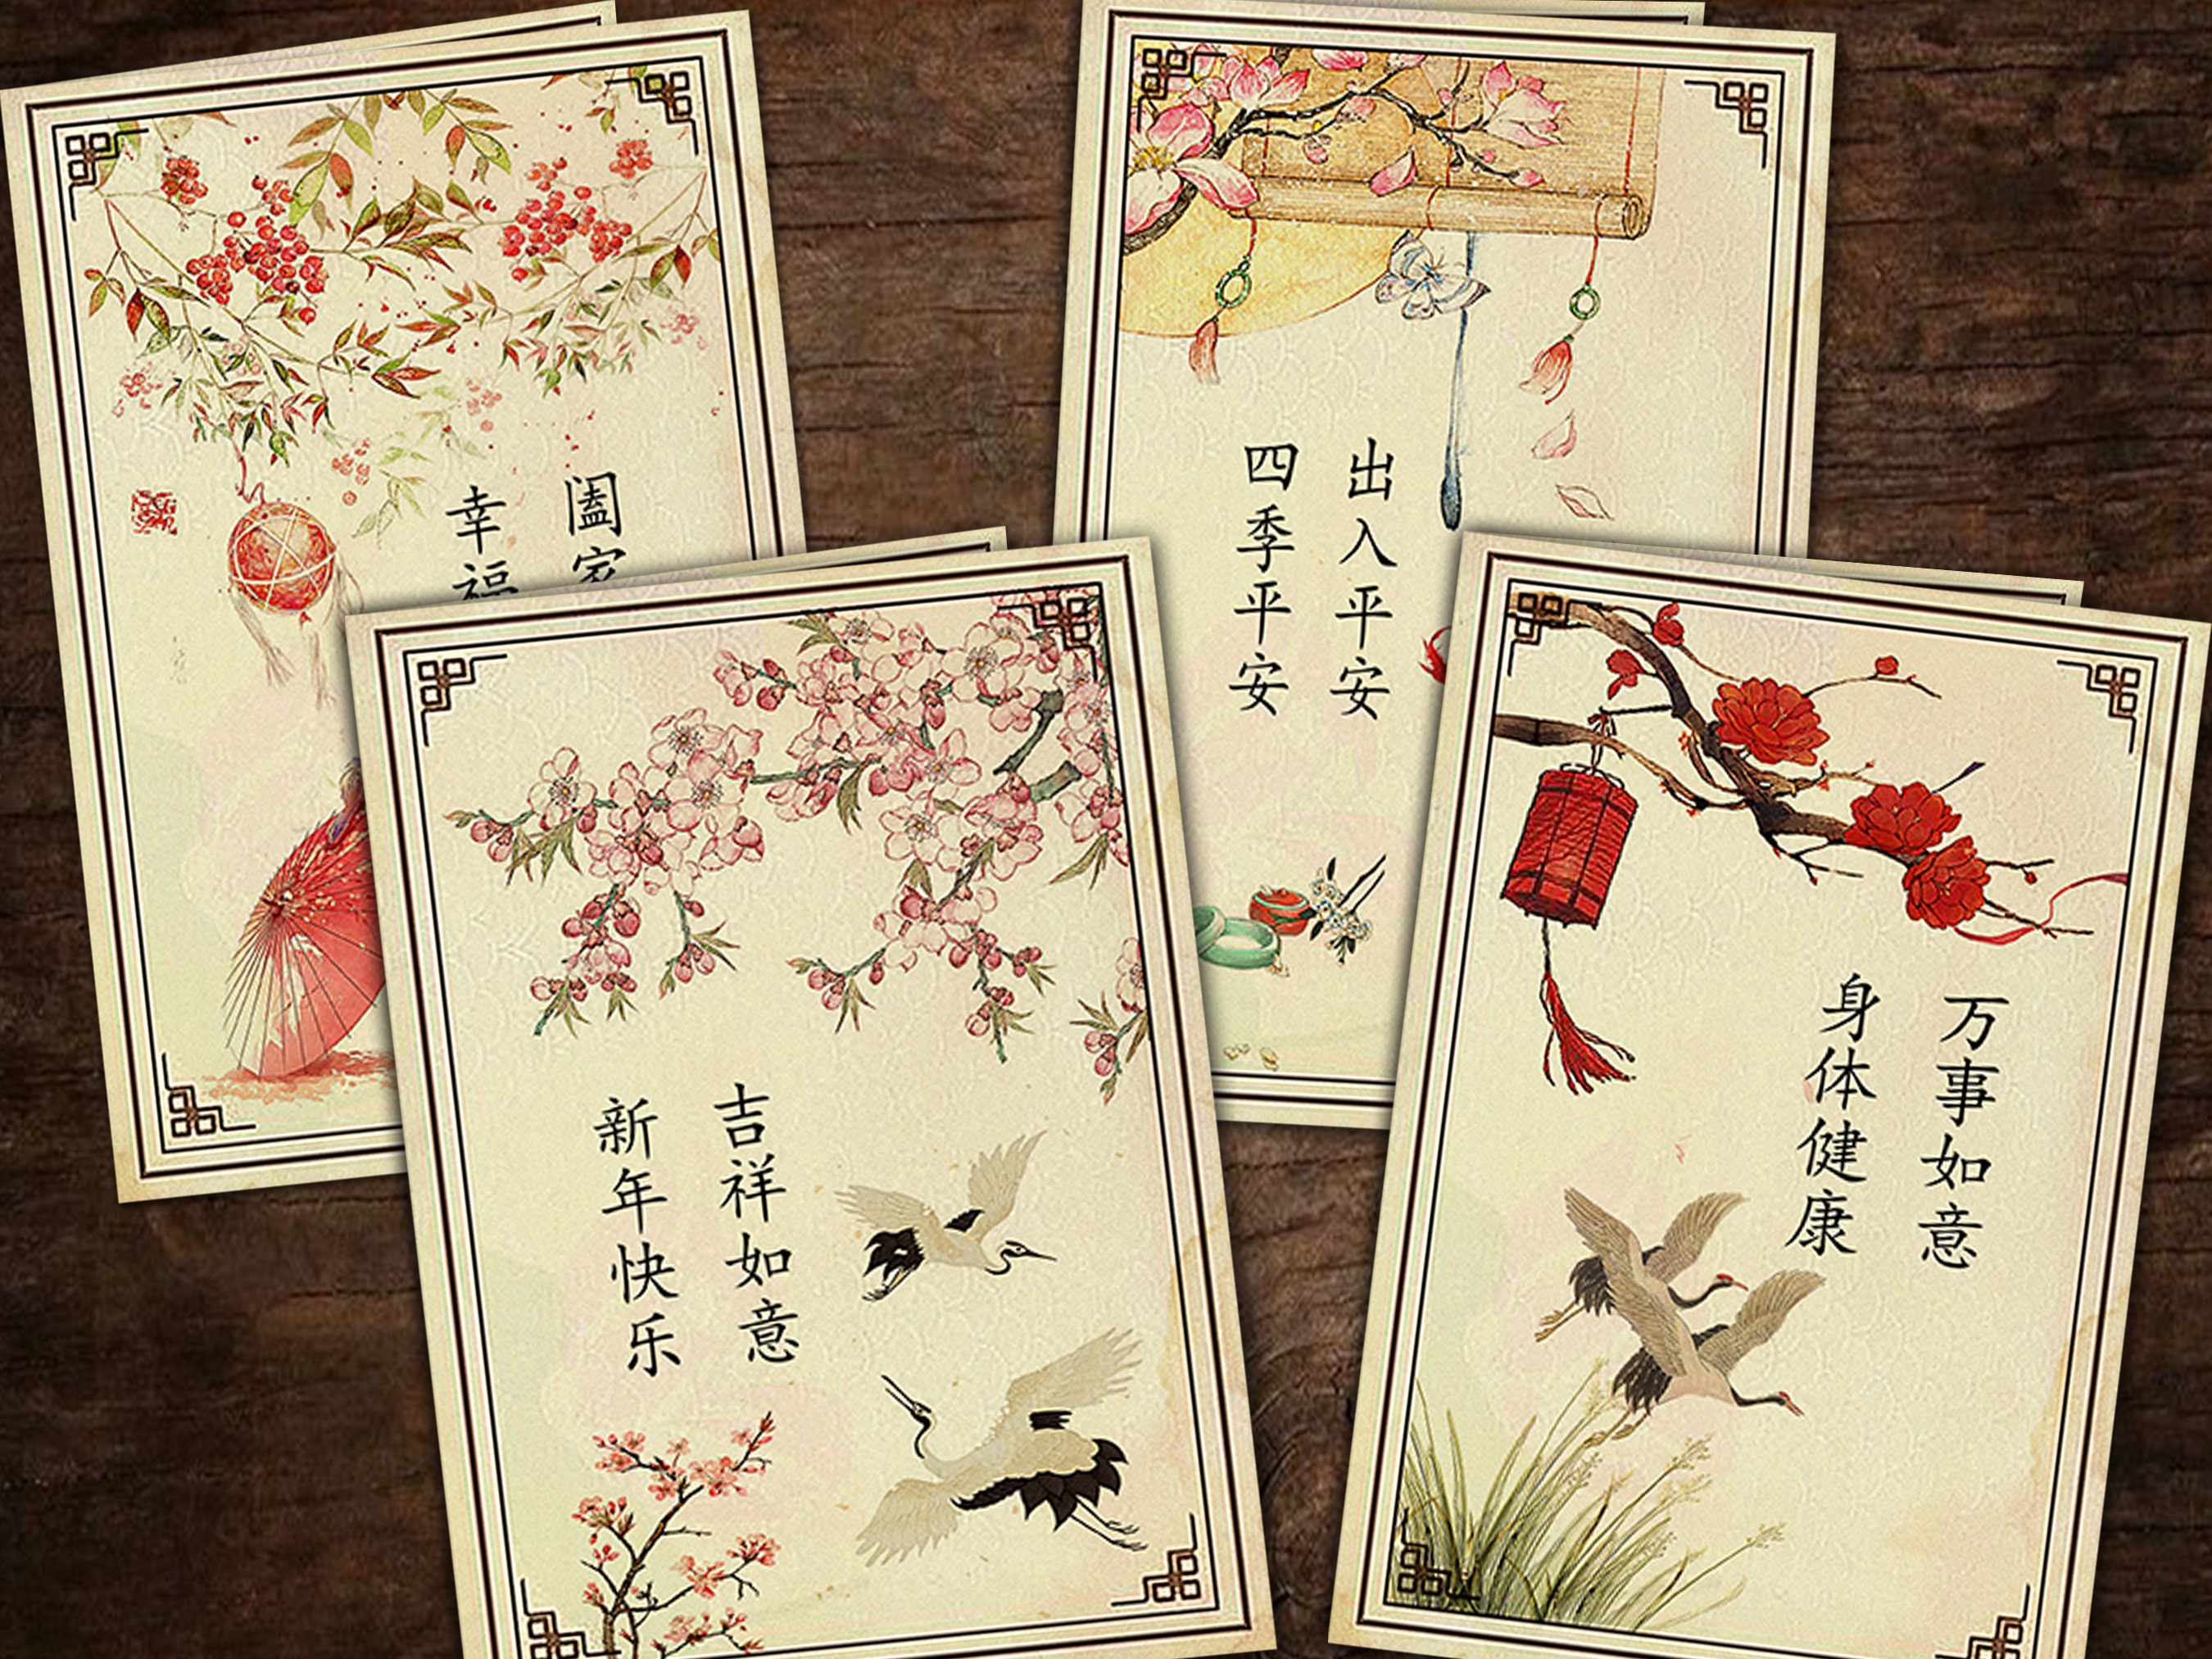 阖家
幸福
出入平安
四季平安
吉祥如意
新年快乐
万事如意
身体健康